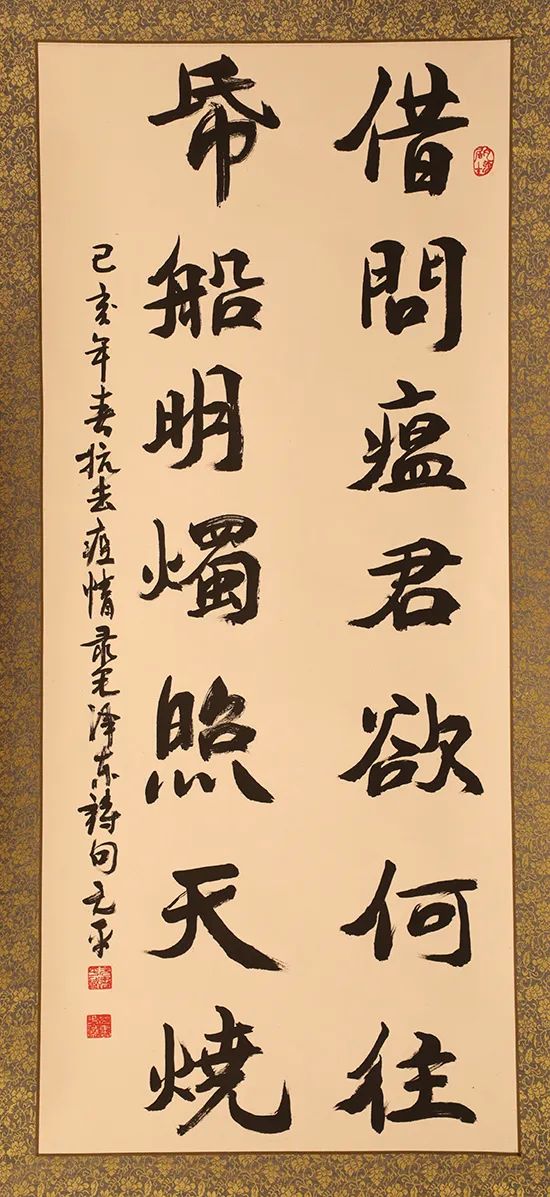 借問瘟君欲何往
帋船明燭照天燒
己亥年春抗击疫情录毛泽东詩句元平